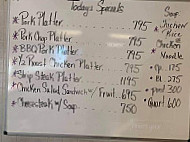 Todays Specials
*Pork Platter 795
*Pork Chop Platter 795
*BBQ Pork Platter 795
*½ Roast Chicken Platter 795
*Strip Steak Platter 1195
*Chicken Salad Sandwich w/ Fruit 695
*Cheesesteak w/ Soup 750
Soup
*Chicken
& Rice
*Chicken
Noodle
Cp. 175
Bl. 275
pint 300
Quart 600